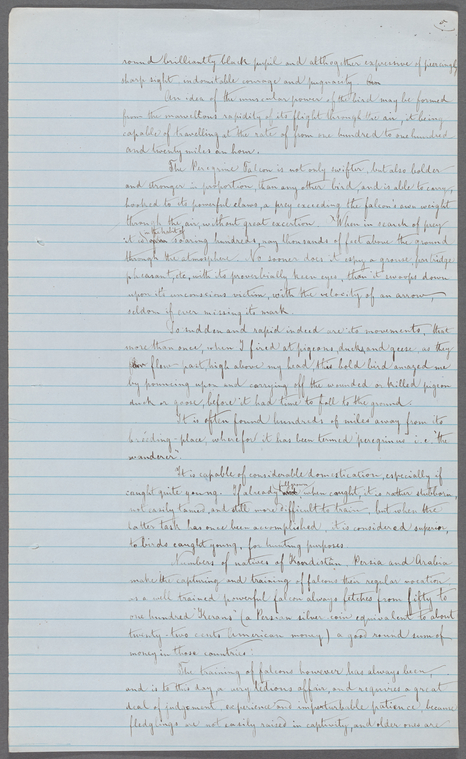 5
round brilliantly black pupil and altogether expressive of piercingly
sharp sight, indomitable courage and pugnacity.
An idea of the muscular power of the bird may be formed
from the marvellous rapidity of its flight through the air, it being
capable of travelling at the rate of from one hundred to one hundred
and twenty miles an hour.
The Peregrine Falcon is not only swifter, but also bolder
and stronger in proportion, than any other bird, and is able to carry,
hooked to its powerful claws, a prey exceeding the falcon's own weight
through the air, without great exertion. When in search of prey
it is in the habit of soaring hundreds, nay thousands of feet above the ground
through the atmosphere. No sooner does it espy a grouse, partridge
pheasant, etc, with its proverbially keen eyes, than it swoops down
upon its unconscious victim, with the velocity of an arrow,
seldom if ever missing its mark.
So sudden and rapid indeed are its movements, that
more than once, when I fired at pigeons, ducks and geese, as they
flew past, high above my head, this bold bird amazed me
by pouncing upon and carrying off the wounded or killed pigeon
duck or goose, before it had time to fall to the ground.
It is often found hundreds of miles away from its
breeding-place, wherefor it has been termed peregrinus i.e. "the
wanderer".
It is capable of considerable domestication, especially if
caught quite young. If already when caught, it is rather stubborn,
not easily tamed, and still more difficult to train, but when the
latter task has once been accomplished, it is considered superior
to birds caught young, for hunting purposes.
Numbers of natives of Hindostan, Persia and Arabia
make the capturing and training of falcons their regular vocation
as a well trained powerful falcon always fetches from fifty to
one hundred "Kerans" (a Persian silver coin equivalent to about
twenty-two cents American money) a good round sum of
money in those countries.
The training of falcons however has always been,
and is to this day a very tedious affair, and requires a great
deal of judgement, experience and imperturbable patience, because
fledglings are not easily raised in captivity, and older ones are